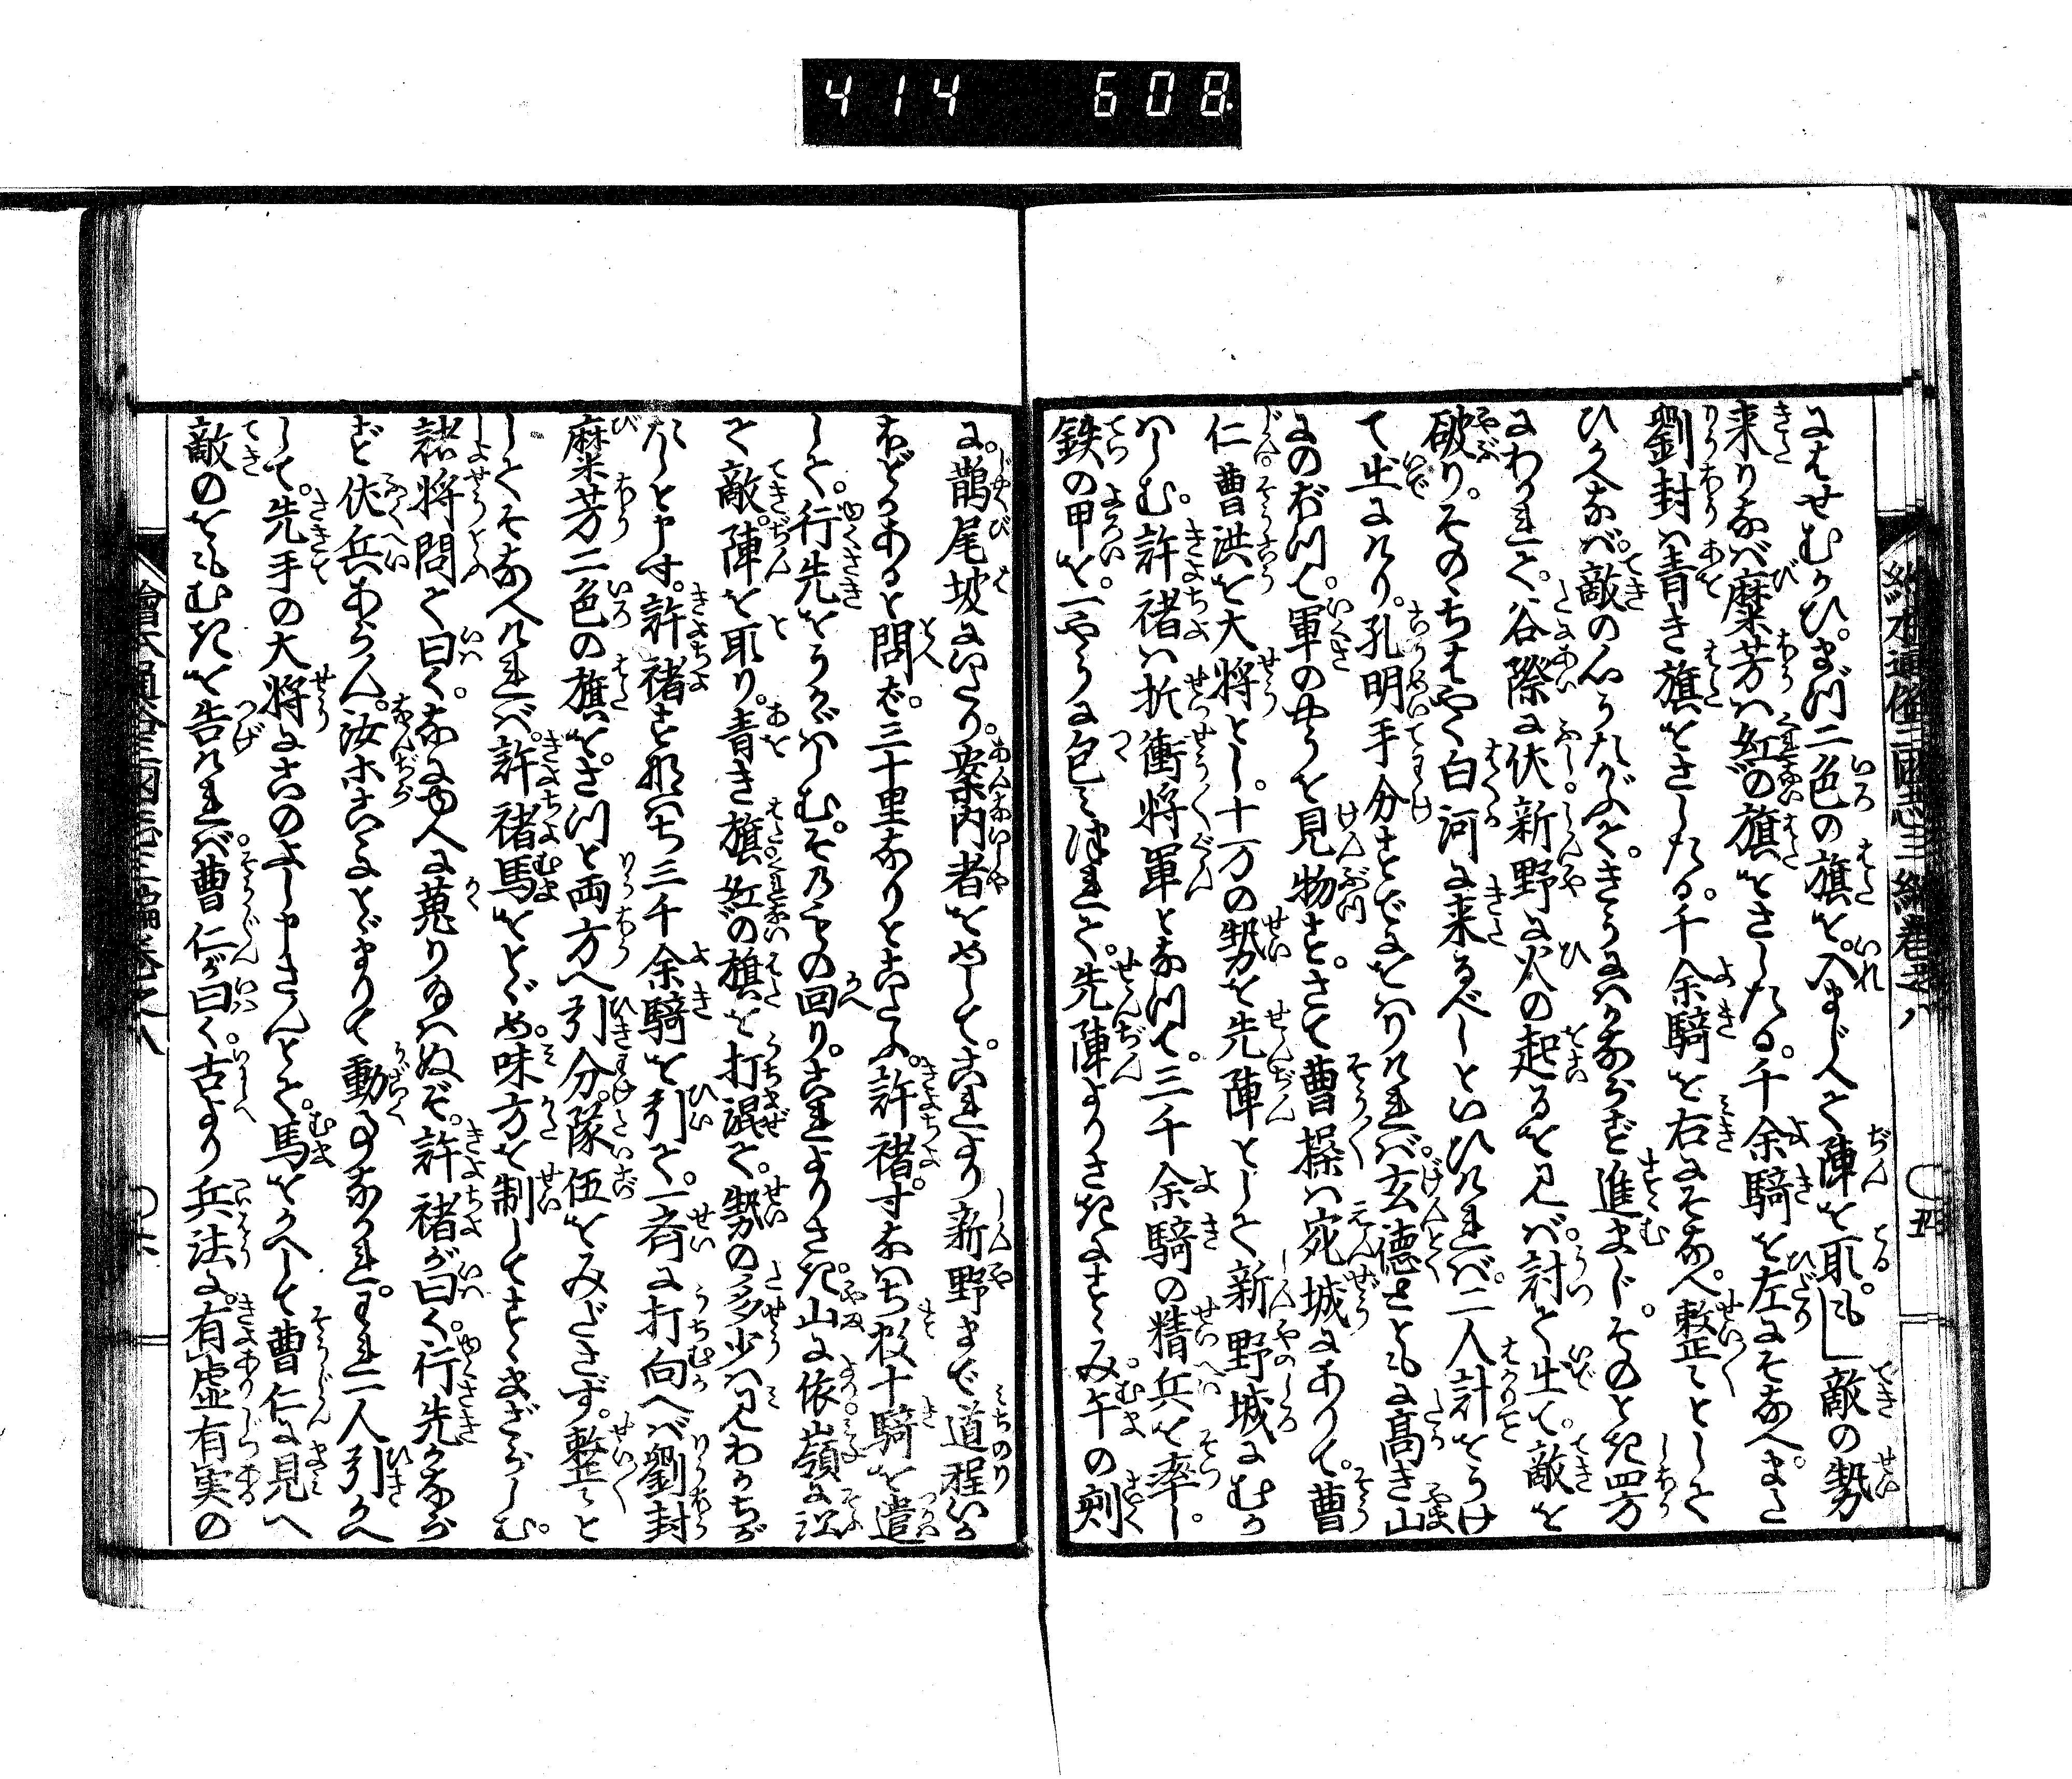 414 608
にはせむかひ。まづ二色の旗を。入まじへて陣を取。もし敵の勢
来りなば。麋芳ハ紅の旗をさしたる。千余騎を左にそなへ。また
劉封ハ青き旗をさしたる。千余騎を右にそなへ。整々として
ひかへなば。敵の心うたがふて。きうにハかならず進まじ。そのとき四方
にわかれて。谷際に伏新野に火の起るを見バ。討て出て。敵を
破り。そのゝちはやく白河に来るべしといひければ。二人計をうけ
て出にけり。孔明手分さだまりければ。玄徳とともに高き山
にのぼつて。軍のやうを見物す。さて曹操ハ宛城にありて。曹
仁曹洪を大将とし。十万の勢を先陣として新野城にむか
はしむ。許褚ハ折衝将軍となつて。三千余騎の精兵を率し。
鉄の甲を。一やうに包みつれて。先陣よりさきにすゝみ。午の刻
に。鵲尾坡にいたり。案内者をめして。これより新野まで道程いか
ほどかあると問ば。三十里なりとこたふ。許褚。すなハち数十騎を遣
して。行先をうかゞハしむ。その者の回り。これよりさき。山に依嶺に沿
て敵。陣を取り。青き旗。紅の旗を打混て。勢の多少ハ見わかちが
たしと申す。許褚すなハち三千余騎を引て。一斉に打向へば劉封
麋芳二色の旗を。さつと両方へ引分。隊伍をみださず。整々と
してそなへければ。許褚馬をとゞめ。味方を制してすゝまざらしむ。
諸将問て曰く。なにゆへに蒐り給ハぬぞ。許褚が曰く。行先かなら
ず伏兵あらん。汝等こゝにとゞまりて動く事なかれ。われ一人引かへ
して。先手の大将にこのよし申さんとて。馬をかへして曹仁に見へ
敵のやうすを告ければ。曹仁が曰く。古より兵法に。有虚有実の